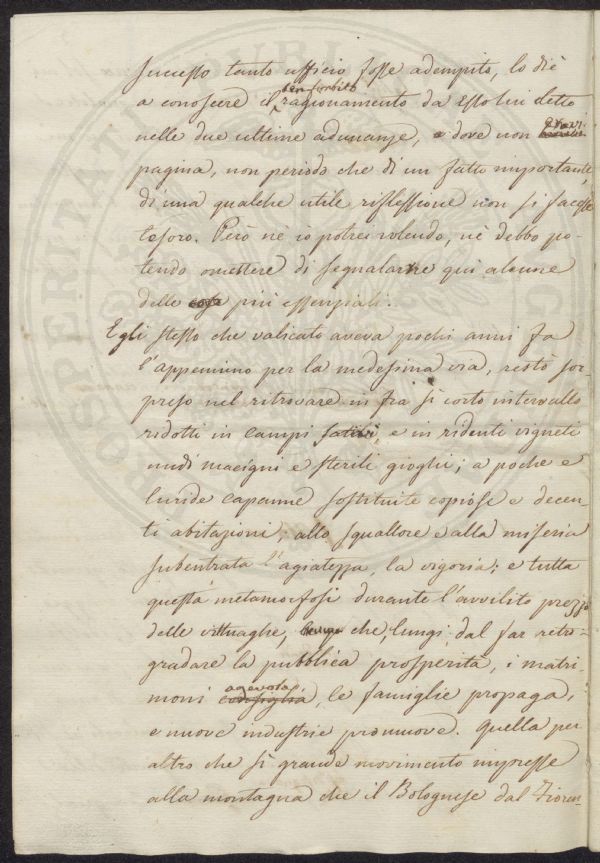 successo tanto ufficio fosse adempito, lo diè
ben forbito
a conoscere il ragionamento da esso lui detto
nelle due ultime adunanze, e dove non
pagina, non periodo che di un fatto importante,
di una qualche utile riflessione non si facesse
tesoro. Però nè io potrei volendo, nè debbo po-
tendo omettere di segnalarne qui alcune
delle cose più essenziali.
Egli stesso che valicato aveva pochi anni fa
l'appennino per la medesima via, restò sor-
preso nel ritrovare in fra sì corto intervallo
ridotti in campi sativi, e in ridenti vigneti
nudi macigni e sterili gioghi; a poche e
luride capanne sostituite copiose e decen-
ti abitazioni; allo squallore e alla miseria
subentrata l'agiatezza, la vigoria: e tutta
questa metamorfosi durante l'avvilito prezzo
delle vittuaglie, che, lungi dal far retro-
gradare la pubblica prosperità, i matri
agevola,
moni consiglia, le famiglie propaga,
e nuove industrie promuove. Quella per
altro che sì grande movimento impresse
alla montagna che il Bolognese dal Fioren-
PROSPERITATI PUBLI